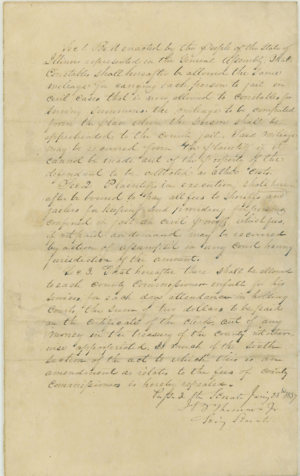 Sec 1 Be it enacted by the People of the State of
Illinois represented in the General Assembly That
Constables shall hereafter be allowed the same
mileage for carrying each person to jail on
civil cases that is now allowed to constables for
serving summons the mileage to be computed
from the place where the person shall be
apprehended to the county jail
may be recovered from the plaintiff if it
cannot be made out of the property of the
defendant to be collected as other costs.
Sec 2. Plaintiffs in execution, shall here-
after be bound to pay all fees to Sheriffs and
jailors for keeping and providing for persons
committed to jail on civil process, which fees
if not paid on demand may be recovered
by action of assumpsit in any court having
jurisdiction of the amount.
Sec 3. That hereafter there shall be allowed
to each county Commissioner for his
services for each days attendance in holding
Courts the sum of two dollars to be paid
on the certificate of the clerk out of any
money in the treasury of the county not other-
wise appropriated. So much of the sixth
section of the act to which this is an
amendment as relates to the fees of county
Commissioners is hereby repealed.
the Senate Jany 28th 1837
Secy Senate